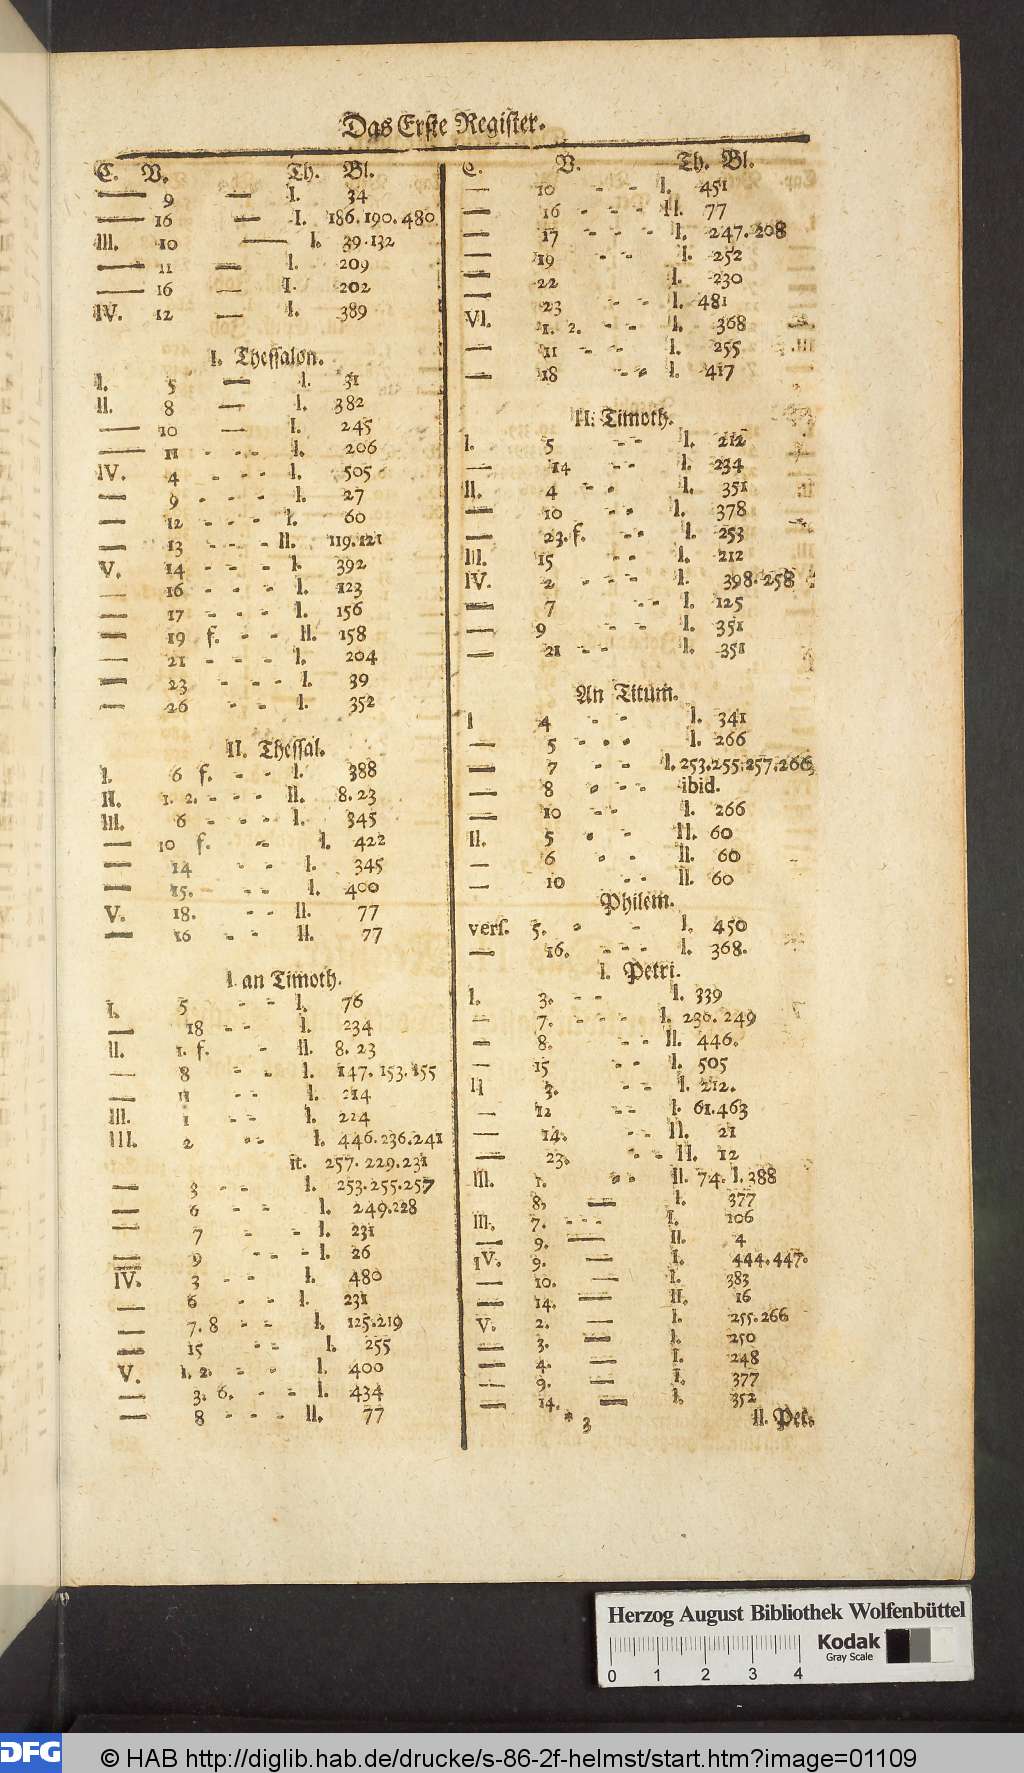 Das Erste Register.
C. V. Th. Bl.
— 9 — I. 34
— 16 — I. 186.190.480
III. 10 — I. 39.132
— 11 — I. 209
— 16 — I. 202
IV. 12 — I. 389
I. Thessalon.
I. 5 — I. 31
II. 8 — I. 382
— 10 — I. 245
— 11 - - - I. 206
IV. 4 - - - I. 505
— 9 - - - I. 27
— 12 - - - I. 60
— 13 - - - II. 119.121
V. 14 - - - I. 392
— 16 - - - I. 123
— 17 - - - I. 156
— 19 f. - - II. 158
— 21 - - - I. 204
— 23 - - - I. 39
— 26 - - I. 352
II. Thessal.
I. 6 f. - - I. 388
II. 1. 2. - - - II. 8. 23
III. 6 - - - I. 345
— 10 f. - - I. 422
— 14 - - I. 345
— 15. - - I. 400
V. 18. - - II. 77
— 16 - - II. 77
I an Timoth.
I. 5 - - I. 76
— 18 - - I. 234
II. 1. f. - II. 8. 23
— 8 - - I. 147. 153. 155
— 11 - - I. 214
III. 1 - - I. 224
III. 2 - - I. 446.236.241
it. 257. 229.231
— 3 - - I. 253.255.257
— 6 - - I. 249.228
— 7 - - I. 231
— 9 - - - I. 26
IV. 3 - - I. 480
— 6 - - I. 231
— 7. 8 - - I. 125.219
— 15 - - I. 255
V. 1. 2. - - I. 400
— 3. 6. - - I. 434
— 8 - - - II. 77
C. V. Th. Bl.
— 10 - - I. 451
— 16 - - - II. 77
— 17 - - - I. 247. 208
— 19 - - I. 252
— 22 I. 230
— 23 - - I. 481
VI. 1. 2. - - I. 368
— 11 - - I. 255
— 18 - - I. 417
II. Timoth.
I. 5 - - I. 212
— 14 - - I. 234
II. 4 - - I. 351
— 10 - - I. 378
— 23. f. - - I. 253
III. 15 - - I. 212
IV. 2 - - - I. 398. 258
— 7 - - I. 125
— 9 - - I. 351
— 21 - - I. 351
An Titum.
I 4 - - I. 341
— 5 - - - I. 266
— 7 - - I. 253.255.257.266
— 8 - - - ibid.
— 10 - - I. 266
II. 5 - - II. 60
— 6 - - II. 60
— 10 - - II. 60
Philem.
vers. 5. - - I. 450
— 16. - - - I. 368.
I. Petri.
I. 3. - - I. 339
— 7. - - - I. 236. 249
— 8. - - II. 446.
— 15 - - I. 505
II 3. - - I. 212.
— 12 - - I. 61.463
— 14. - - II. 21
— 23. - - II. 12
III. 1. - - II. 74. I. 388
8. — I. 377
III. 7. - - - I. 106
— 9. — II. 4
IV. 9. — I. 444.447.
— 10. — I. 383
— 14. — II. 16
V. 2. — I. 255.266
— 3. — I. 250
— 4. — I. 248
— 9. — I. 377
— 14. — I. 352
* 3 II. Pet.
Herzog August Bibliothek Wolfenbüttel
Kodak
Gray Scale
0 1 2 3 4
DFG © HAB http://diglib.hab.de/drucke/s-86-2f-helmst/start.htm?image=01109